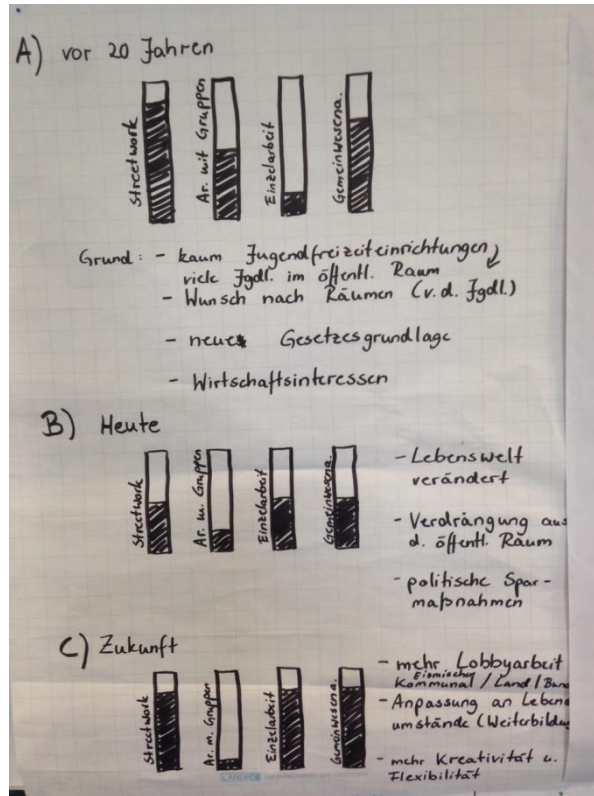 A) vor 20 Jahren
Streetwork
Ar. mit Gruppen
Einzelarbeit
Gemeinwesena.
Grund: - kaum Jugendfreizeiteinrichtungen
viele Jgdl. im öffentl. Raum
- Wunsch nach Räumen (v. d. Jgdl.)
- neue Gesetzesgrundlage
- Wirtschaftsinteressen
B) Heute
Streetwork
Ar. m. Gruppen
Einzelarbeit
Gemeinwesena.
- Lebenswelt
verändert
- Verdrängung aus
d. öffentl. Raum
- politische Spar-
maßnahmen
C) Zukunft
Streetwork
Ar. m. Gruppen
Einzelarbeit
Gemeinwesena.
- mehr Lobbyarbeit
Kommunal / Land / Bun
- Anpassung an Leben
umstände (Weiterbildu
- mehr Kreativität u.
Flexibilität